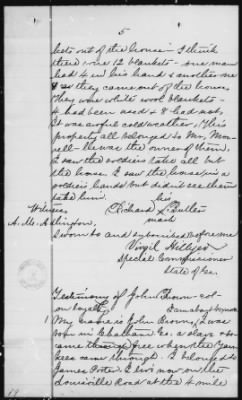 5
kets out of the house - I think
there were 12 blankets - one man
had 4 in his hand & another one
8 as they came out of the house
They were white wool blankets -
4 had been used & 8 had not.
It was awful cold weather. This
property all belonged to Mr. Mor-
rell - He was the owner of them,
I saw the soldiers take all but
the horse. I saw the horse in a
soldiers hands but did not see them
take him.
his
Witness Richard X Butler
A. M. mark
Sworn to and subscribed before me
Virgil Hillyer
Special Commissioner
State of Ga.
Testimony of John Brown - col-
on loyalty.
1 My name is John Brown, I was
born in Chatham Co. a slave &
came free when the Yan-
kees came through. I belonged to
James Porter. I live now on the
Louisville Road at the 4 mile